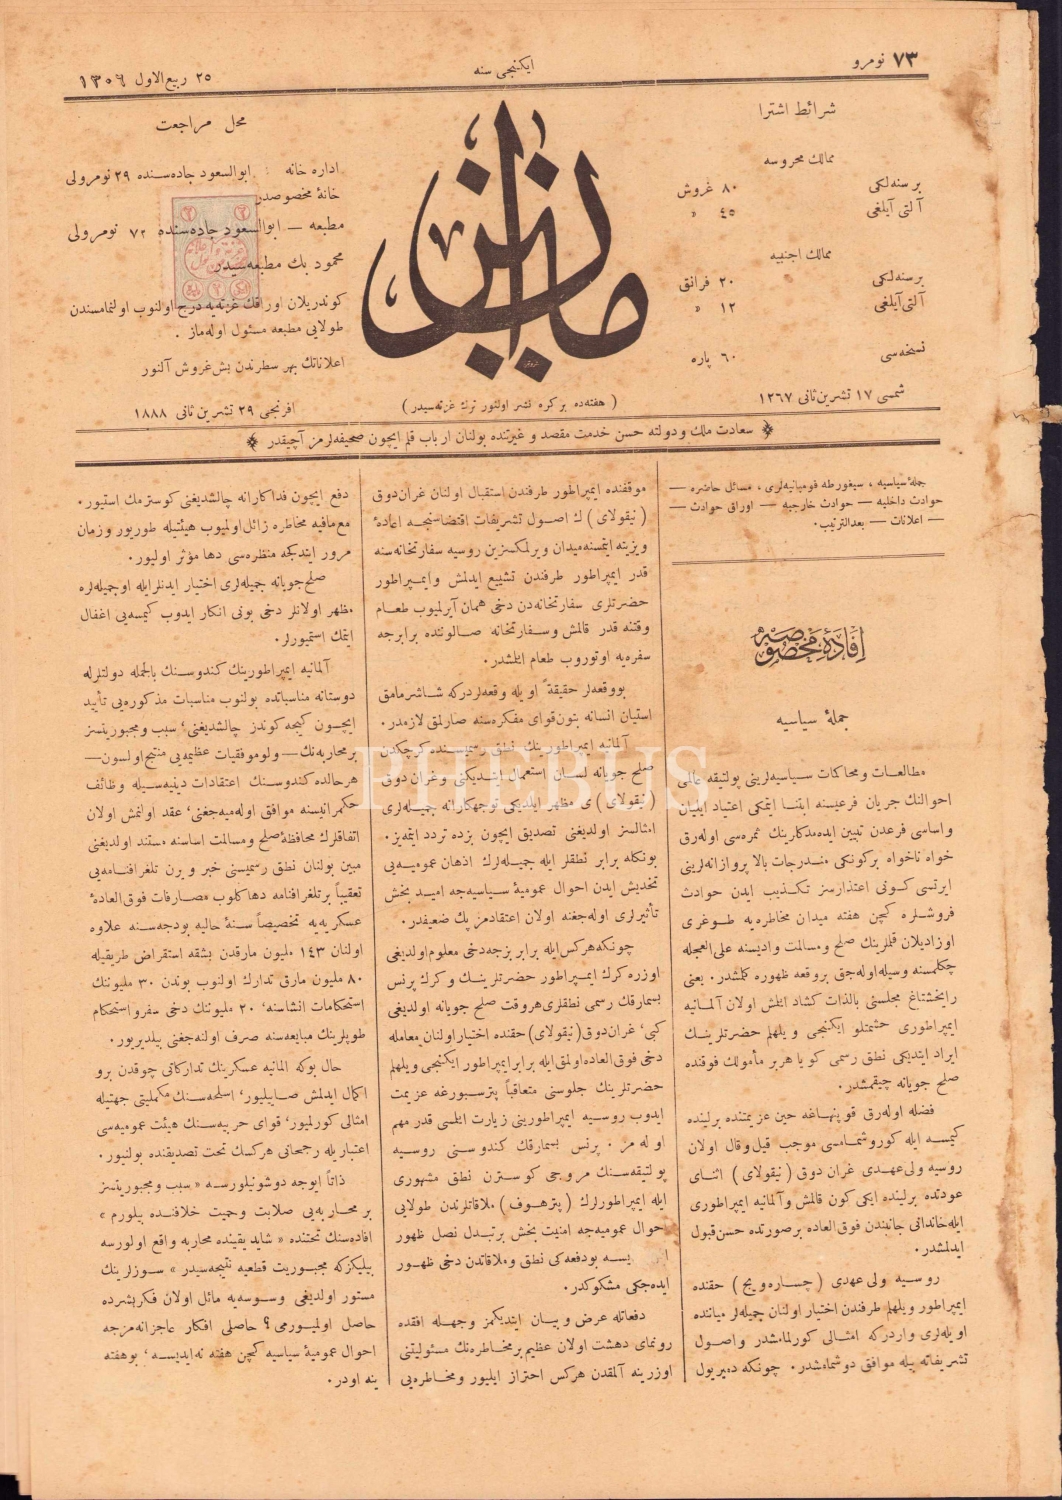 ٧٣ نومرو
ایکنجی سنه
٢٥ ربیع الاول ١٣٠٦
شرائط اشترا
ممالك محروسه
بر سنه‌لكی ٨٠ غروش
آلتی آیلغی ٤٥ »
ممالك اجنبیه
بر سنه‌لكی ٢٠ فرانق
آلتی آیلغی ١٢ »
نسخه‌سی ٦٠ پاره
شمسی ١٧ تشرین ثانی ١٢٦٧
میزان
( هفته‌ده بر كره نشر اولنور ترك غزته‌سیدر )
محل مراجعت
اداره خانه : ابوالسعود جاده‌سنده ٢٩ نومرولی
خانهٔ مخصوصدر
مطبعه — ابوالسعود جاده‌سنده ٧٢ نومرولی
محمود بك مطبعه‌سیدر
كوندریلان اوراقك غزته‌یه درج اولنوب اولنمامسندن
طولایی مطبعه مسئول اوله‌ماز .
اعلاناتك بهر سطرندن بش غروش آلنور
افرنجی ٢٩ تشرین ثانی ١٨٨٨
سعادت ملك ودولته حسن خدمت مقصد و غیرتنده بولنان ارباب قلم ایچون صحیفه‌لرمز آچیقدر
جملهٔ سیاسیه ، سیغورطه قومپانیه‌لری ، مسائل حاضره —
حوادث داخلیه — حوادث خارجیه — اوراق حوادث —
— اعلانات — بعدالترتیب .
افادهٔ مخصوصه
جملهٔ سیاسیه
مطالعات ومحاكات سیاسیه‌لرینی پولتیقهٔ عالمی
احوالنك جریان فرعیسنه ابتنا ایتمكی اعتیاد ایدیلن
واساسی فرعدن تبیین ایده‌مدكلرینك ثمره‌سی اوله‌رق
خواه ناخواه بركونكی مندرجات بالا پروازانه‌لرینی
ایرتسی كونی اعتذارسز تكذیب ایدن حوادث
فروشلره كچن هفته میدان مخاطره‌یه طوغری
اوزادیلان قلملرینك صلح ومسالمت وادیسنه علی العجله
چكلمسنه وسیله اوله‌جق بر وقعه ظهوره كلمشدر . یعنی
رایخشتاغ مجلسنی بالذات كشاد ایتمش اولان آلمانیه
ایمپراطوری حشمتلو ایكنجی ویلهلم حضرتلرینك
ایراد ایتدیكی نطق رسمی كویا هر بر مأمولك فوقنده
صلح جویانه چیقمشدر .
فضله اوله‌رق قوپنهاغه حین عزیمتنده برلینده
كیمسه ایله كوروشمامسی موجب قیل وقال اولان
روسیه ولی‌عهدی غران دوق ( نیقولای ) اثنای
عودتده برلینده ایكی كون قالمش وآلمانیه ایمپراطوری
ایله خاندانی جانبندن فوق العاده بر صورتده حسن قبول
ایدلمشدر .
روسیه ولی عهدی ( چساره‌ویچ ) حقنده
ایمپراطور ویلهلم طرفندن اختیار اولنان جمیله‌لر میاننده
اویله‌لری واردركه امثالی كورلمامشدر واصول
تشریفاته بیله موافق دوشمامشدر . چونكه ده‌میریول
موقفنده ایمپراطور طرفندن استقبال اولنان غران‌دوق
( نیقولای ) ك اصول تشریفات اقتضاسنجه اعادهٔ
ویزیته ایتمسنه میدان ویرلمكسزین روسیه سفارتخانه‌سنه
قدر ایمپراطور طرفندن تشییع ایدلمش وایمپراطور
حضرتلری سفارتخانه‌دن دخی همان آیرلمیوب طعام
وقتنه قدر قالمش وسفارتخانه صالوننده برابرجه
سفره‌یه اوتوروب طعام ایتمشدر .
بو وقعه‌لر حقیقةً اویله وقعه‌لردركه شاشرمامق
استیان انسانه بتون قوای مفكره‌سنه صارلمق لازمدر .
آلمانیه ایمپراطورینك نطق رسمیسنده كرچكدن
صلح جویانه لسان استعمال ایتدیكنی وغران دوق
( نیقولای ) ی مظهر ایلدیكی توجهكارانه جمیله‌لری
امثالسز اولدیغنی تصدیق ایچون بزده تردد ایتمیز .
بونكله برابر نطقلر ایله جمیله‌لرك اذهان عمومیه‌یی
تخدیش ایدن احوال عمومیهٔ سیاسیه‌جه امید بخش
تأثیرلری اوله‌جغنه اولان اعتقادمز پك ضعیفدر .
چونكه هركس ایله برابر بزجه دخی معلوم اولدیغی
اوزره كرك ایمپراطور حضرتلرینك وكرك پرنس
بسمارقك رسمی نطقلری هر وقت صلح جویانه اولدیغی
كبی ، غران دوق ( نیقولای ) حقنده اختیار اولنان معامله
دخی فوق العاده اولمق ایله برابر ایمپراطور ایكنجی ویلهلم
حضرتلرینك جلوسنی متعاقباً پترسبورغه عزیمت
ایدوب روسیه ایمپراطورینی زیارت ایتمسی قدر مهم
اوله‌مز . پرنس بسمارقك كندوسنی روسیه
پولتیقه‌سنك مروجی كوسترن نطق مشهوری
ایله ایمپراطورلرك ( پترهوف ) ملاقاتلرندن طولایی
احوال عمومیه‌جه امنیت بخش بر تبدل نصل ظهور
یسه بودفعه‌كی نطق وملاقاتدن دخی ظهور
ایده‌جكی مشكوكدر .
دفعاتله عرض وبیان ایتدیكمز وجهله افقده
رونمای دهشت اولان عظیم بر مخاطره‌نك مسئولیتنی
اوزرینه آلمقدن هركس احتراز ایلیور ومخاطره‌یی
دفع ایچون فداكارانه چالشدیغنی كوسترمك استیور .
مع مافیه مخاطره زائل اولمیوب هیئتیله طوریور وزمان
مرور ایتدكجه منظره‌سی دها مؤثر اولیور .
صلح جویانه جمیله‌لری اختیار ایدنلر ایله او جمیله‌لره
مظهر اولانلر دخی بونی انكار ایدوب كیمسه‌یی اغفال
ایتمك استمیورلر .
آلمانیه ایمپراطورینك كندوسنك بالجمله دولتلرله
دوستانه مناسباتده بولنوب مناسبات مذكوره‌یی تأیید
ایچون كیجه كوندز چالشدیغنی ، سبب ومجبوریتسز
بر محاربه‌نك — ولو موفقیات عظیمه‌یی منتج اولسون —
هر حالده كندوسنك اعتقادات دینیه‌سیله وظائف
حكمرانیسنه موافق اوله‌میه‌جغنی ، عقد اولنمش اولان
اتفاقلرك محافظهٔ صلح ومسالمت اساسنه مستند اولدیغنی
مبین بولنان نطق رسمیسنی خبر ویرن تلغرافنامه‌یی
تعقیباً بر تلغرافنامه دها كلوب مصارفات فوق العادهٔ
عسكریه‌یه تخصیصاً سنهٔ حالیه بودجه‌سنه علاوه
اولنان ١٤٣ ملیون مارقدن بشقه استقراض طریقیله
٨٠ ملیون مارق تدارك اولنوب بوندن ٣٠ ملیوننك
استحكامات انشاسنه ، ٢٠ ملیوننك دخی سفر واستحكام
طوپلرینك مبایعه‌سنه صرف اولنه‌جغنی بیلدیریور .
حال بوكه المانیه عسكرینك تداركاتی چوقدن برو
اكمال ایدلمش صاییلیور ، اسلحه‌سنك مكملیتی جهتیله
امثالی كورلمیور ، قوای حربیه‌سنك هیئت عمومیه‌سی
اعتباریله رجحانی هركسك تحت تصدیقنده بولنیور .
ذاتاً ایوجه دوشونیلورسه « سبب ومجبوریتسز
بر محاربه‌یی صلابت وحمیت خلافنده بیلورم »
افاده‌سنك تحتنده « شاید یقینده محاربه واقع اولورسه
بیلیكزكه مجبوریت قطعیه نتیجه‌سیدر » سوزلرینك
مستور اولدیغی وسوسه‌یه مائل اولان فكر بشرده
حاصل اولمیورمی ؟ حاصلی افكار عاجزانه‌مزجه
احوال عمومیهٔ سیاسیه كچن هفته نه‌ایدیسه ، بو هفته
ینه اودر .
PHEBUS